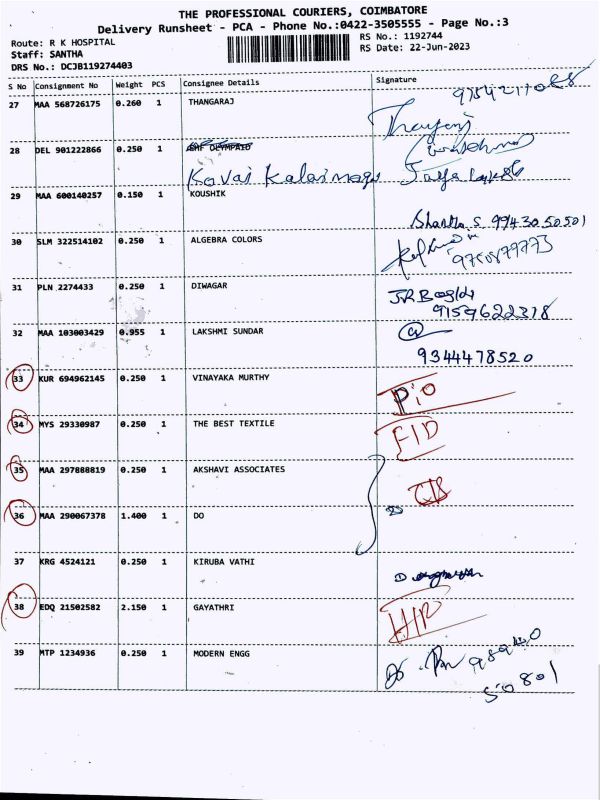 THE PROFESSIONAL COURIERS, COIMBATORE
Delivery Runsheet - PCA - Phone No.:0422-3505555 - Page No.:3
Route: R K HOSPITAL RS No.: 1192744
Staff: SANTHA RS Date: 22-Jun-2023
DRS No.: DCJB119274403
S No Consignment No Weight PCS Consignee Details Signature
27 MAA 568726175 0.260 1 THANGARAJ
28 DEL 901222866 0.250 1
Kovai Kalaimagal
29 MAA 600140257 0.150 1 KOUSHIK
Shantha S 9943050501
30 SLM 322514102 0.250 1 ALGEBRA COLORS
31 PLN 2274433 0.250 1 DIWAGAR
9159622378
32 MAA 103003429 0.955 1 LAKSHMI SUNDAR
9344478520
33 KUR 694962145 0.250 1 VINAYAKA MURTHY
34 MYS 29330987 0.250 1 THE BEST TEXTILE
35 MAA 297888819 0.250 1 AKSHAVI ASSOCIATES
36 MAA 290067378 1.400 1 DO
37 KRG 4524121 0.250 1 KIRUBA VATHI
38 EDQ 21502582 2.150 1 GAYATHRI
39 MTP 1234936 0.250 1 MODERN ENGG
50801